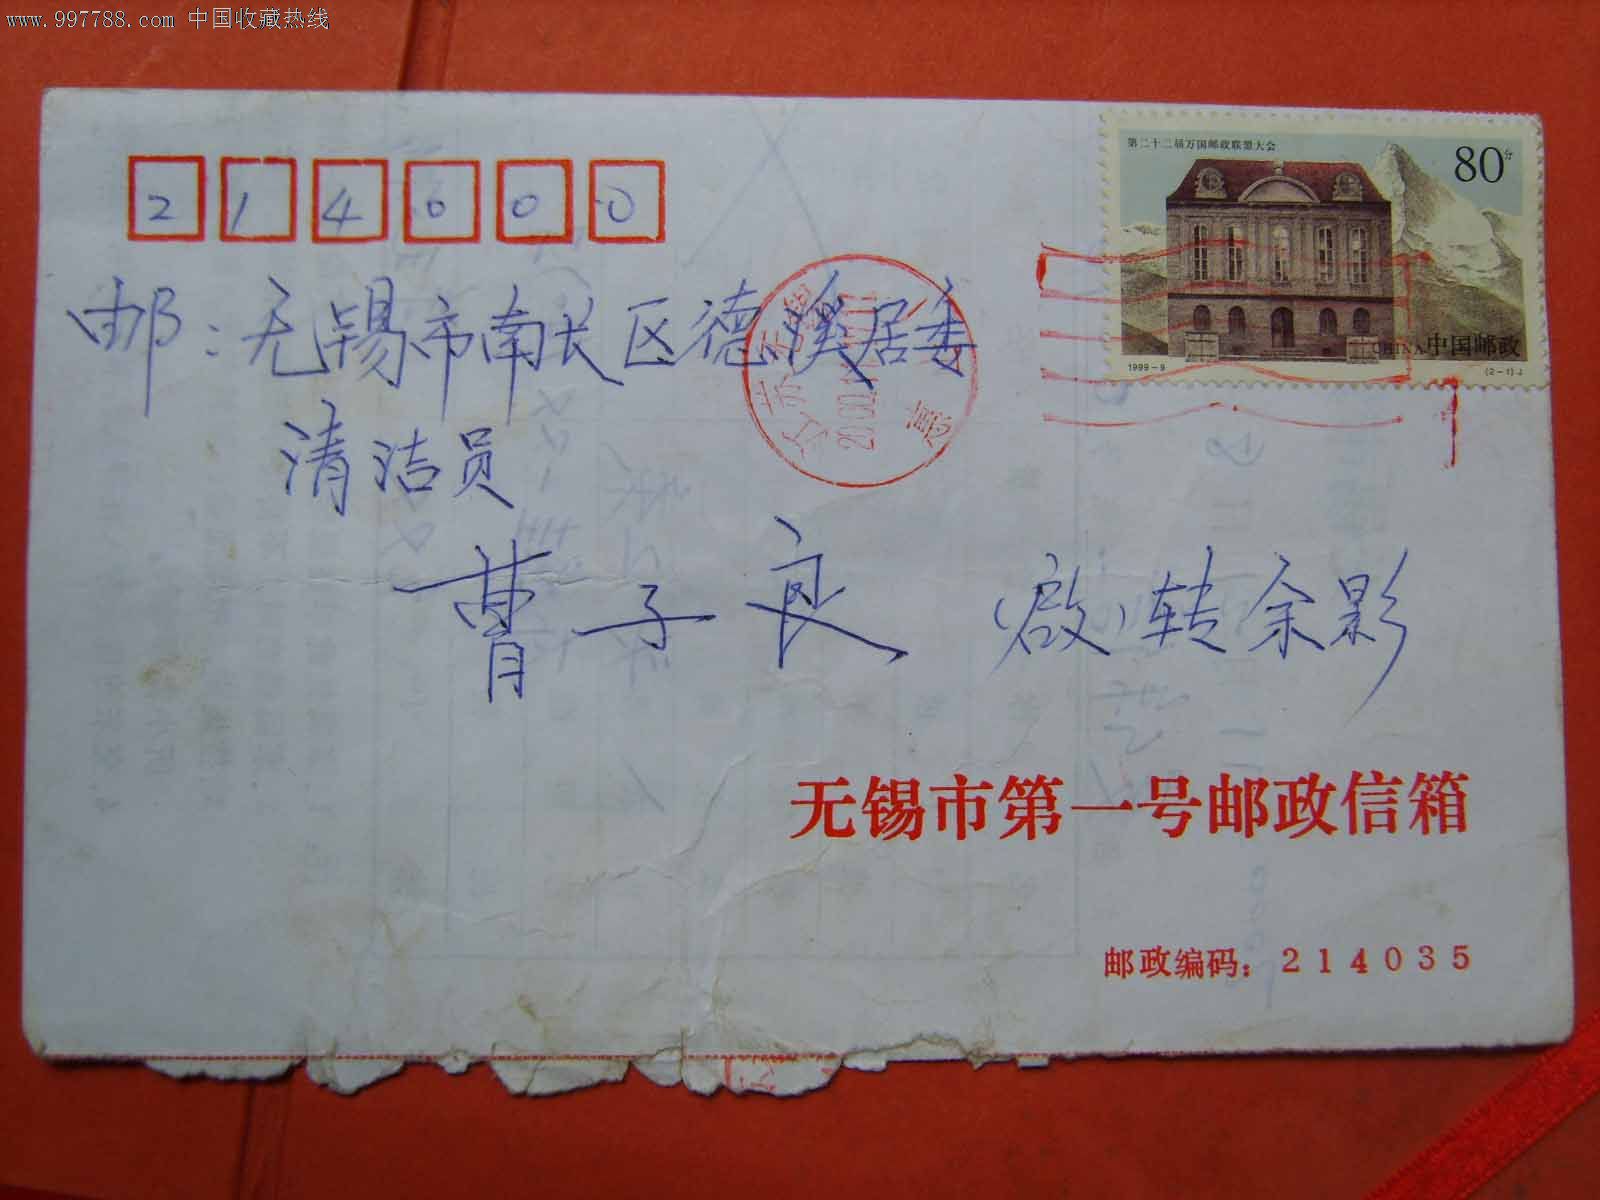 www.997788.com 中国收藏热线
第二十二届万国邮政联盟大会
80分
214000
邮：无锡市南长区德溪居委
CHINA中国邮政
1999-9
(2-1)J
清洁员
曹子良 (启) 转余影
无锡市第一号邮政信箱
邮政编码：214035